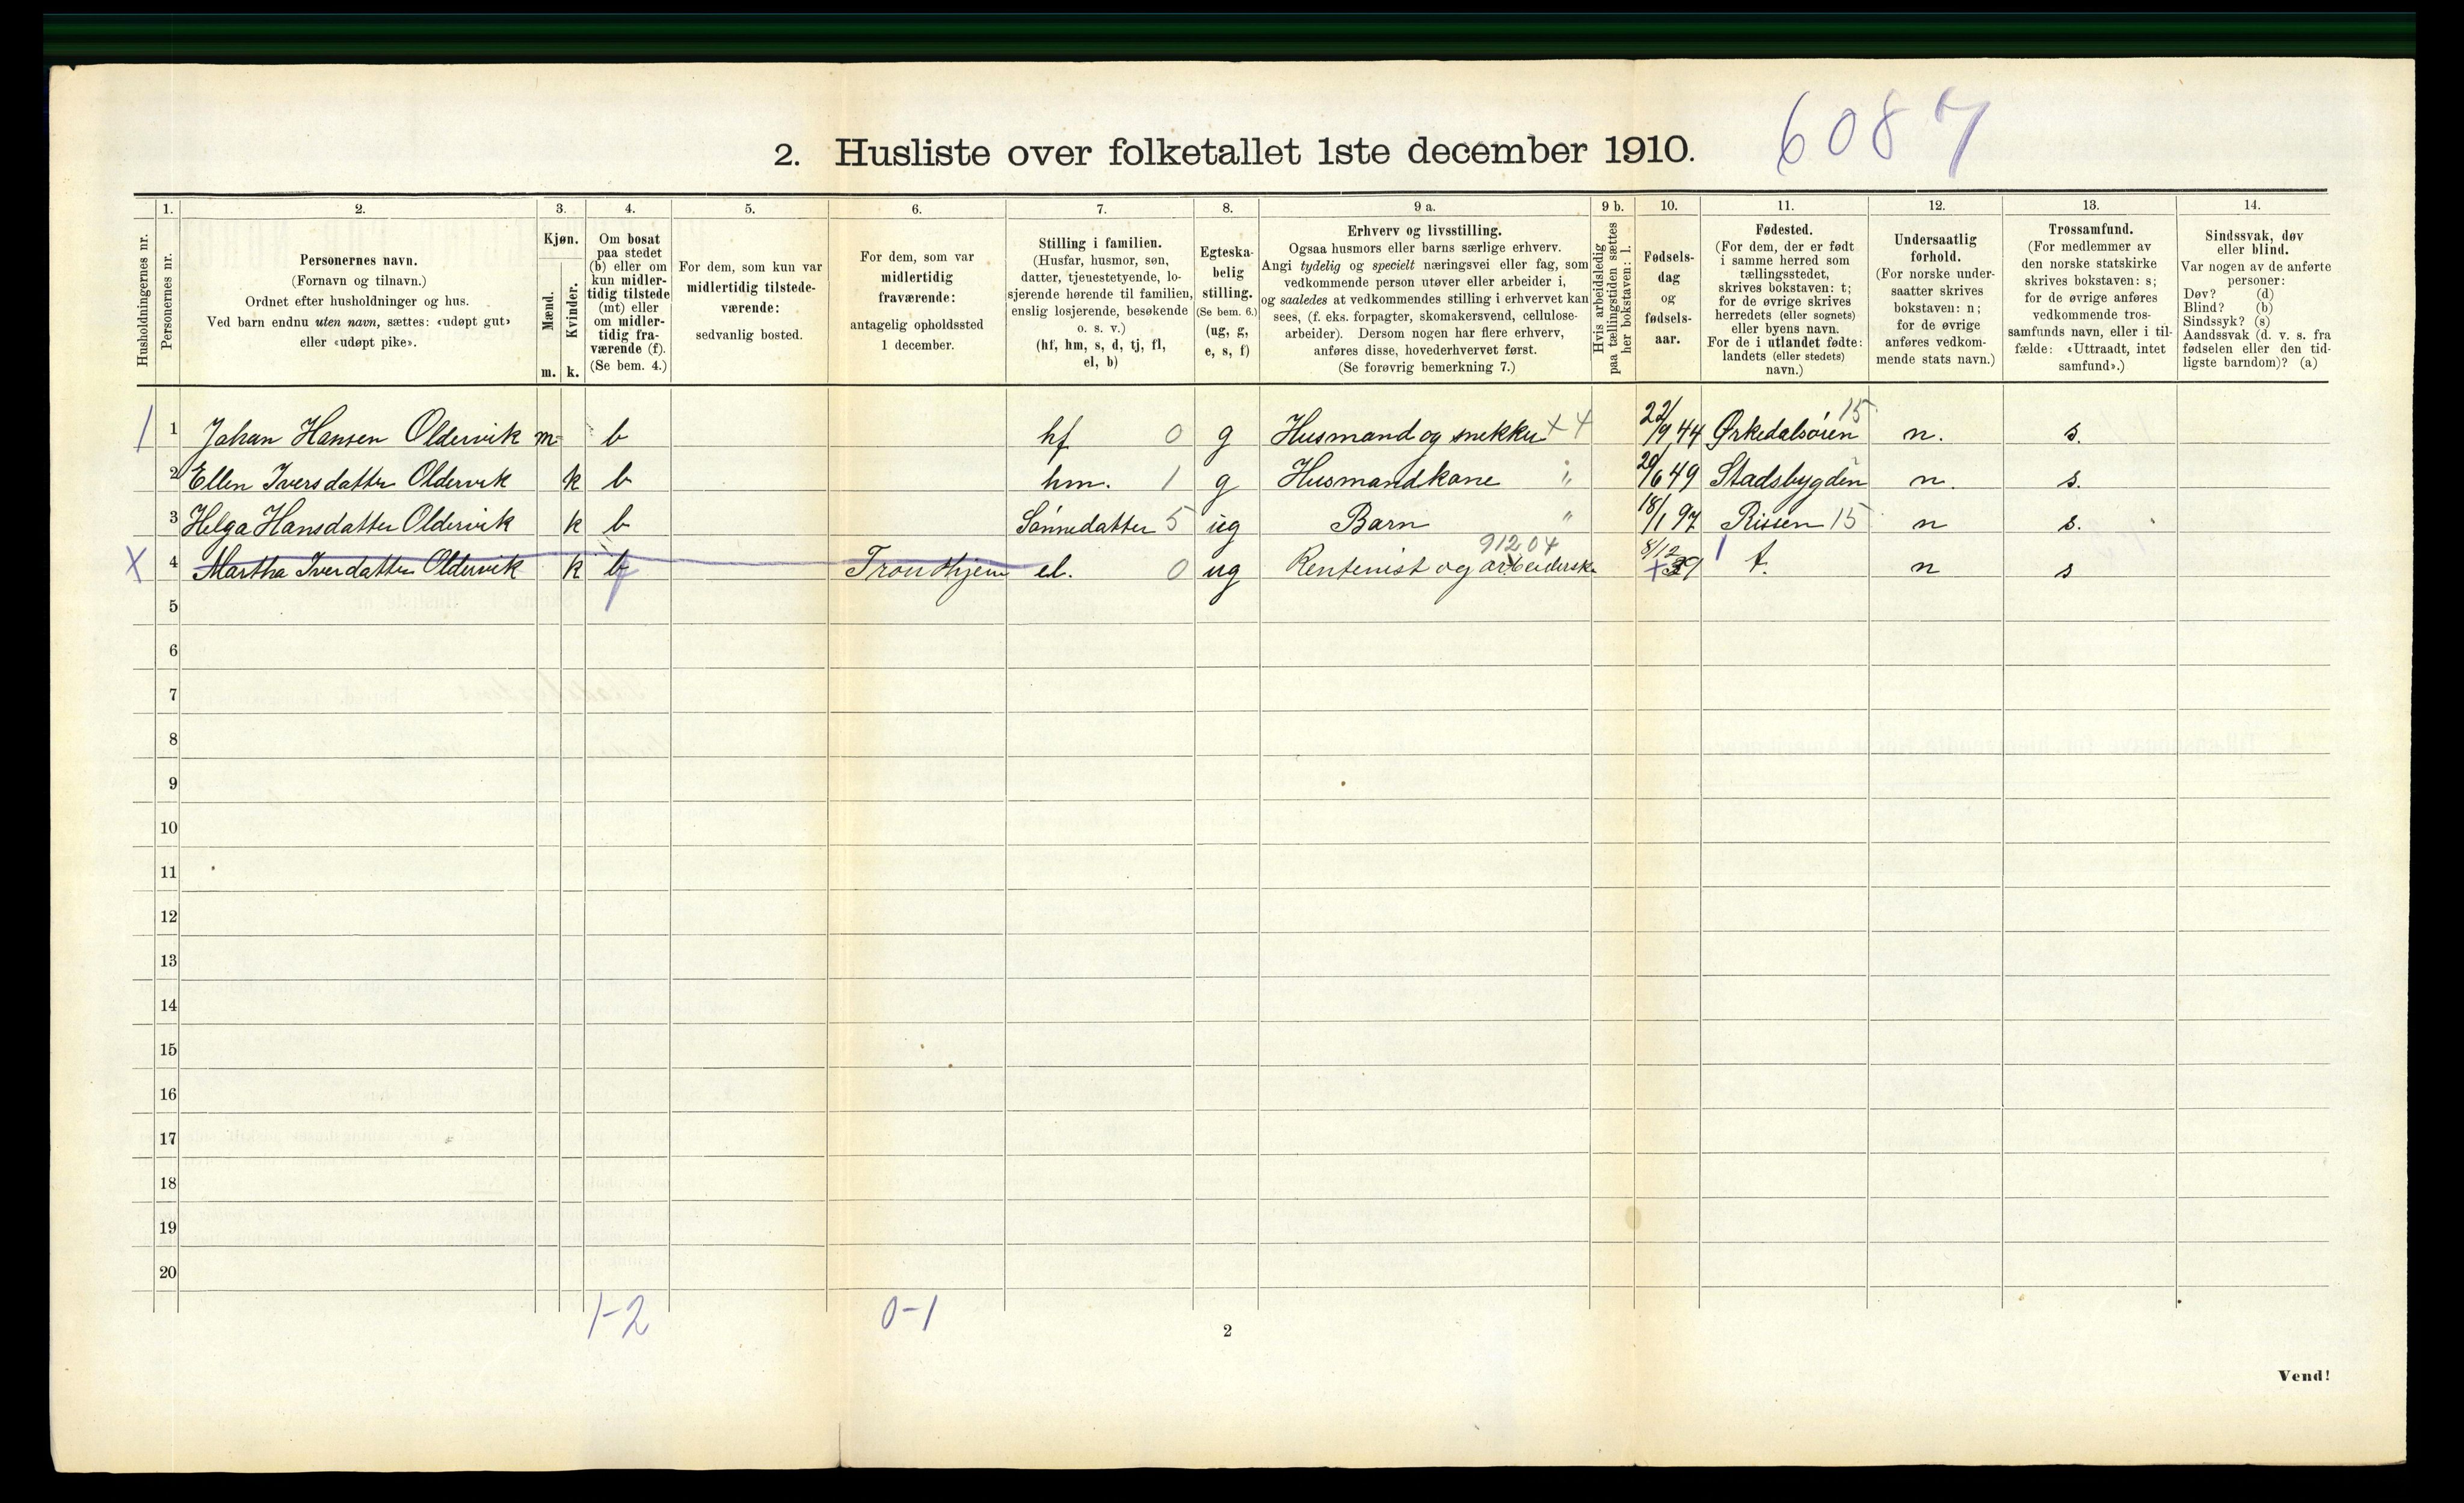 6087
2. Husliste over folketallet 1ste december 1910.
Husholdningernes nr.
1.
Personernes nr.
2.
Personernes navn.
(Fornavn og tilnavn.)
Ordnet efter husholdninger og hus.
Ved barn endnu uten navn, sættes: «udøpt gut»
eller «udøpt pike».
3.
Kjøn.
Mænd.
Kvinder.
m. k.
4.
Om bosat
paa stedet
(b) eller om
kun midler-
tidig tilstede
(mt) eller
om midler-
tidig fra-
værende (f).
(Se bem. 4.)
5.
For dem, som kun var
midlertidig tilstede-
værende:
sedvanlig bosted.
6.
For dem, som var
midlertidig
fraværende:
antagelig opholdssted
1 december.
7.
Stilling i familien.
(Husfar, husmor, søn,
datter, tjenestetyende, lo-
sjerende hørende til familien,
enslig losjerende, besøkende
o. s. v.)
(hf, hm, s, d, tj, fl,
el, b)
8.
Egteska-
belig
stilling.
(Se bem. 6.)
(ug, g,
e, s, f)
9 a.
Erhverv og livsstilling.
Ogsaa husmors eller barns særlige erhverv.
Angi tydelig og specielt næringsvei eller fag, som
vedkommende person utøver eller arbeider i,
og saaledes at vedkommendes stilling i erhvervet kan
sees, (f. eks. forpagter, skomakersvend, cellulose-
arbeider). Dersom nogen har flere erhverv,
anføres disse, hovederhvervet først.
(Se forøvrig bemerkning 7.)
9 b.
Hvis arbeidsledig
paa tællingstiden sættes
her bokstaven: l.
10.
Fødsels-
dag
og
fødsels-
aar.
11.
Fødested.
(For dem, der er født
i samme herred som
tællingsstedet,
skrives bokstaven: t;
for de øvrige skrives
herredets (eller sognets)
eller byens navn.
For de i utlandet fødte:
landets (eller stedets)
navn.)
12.
Undersaatlig
forhold.
(For norske under-
saatter skrives
bokstaven: n;
for de øvrige
anføres vedkom-
mende stats navn.)
13.
Trossamfund.
(For medlemmer av
den norske statskirke
skrives bokstaven: s;
for de øvrige anføres
vedkommende tros-
samfunds navn, eller i til-
fælde: «Uttraadt, intet
samfund».)
14.
Sindssvak, døv
eller blind.
Var nogen av de anførte
personer:
Døv? (d)
Blind? (b)
Sindssyk? (s)
Aandssvak (d. v. s. fra
fødselen eller den tid-
ligste barndom)? (a)
1 1 Johan Hansen Oldervik m b hf 0 g Husmand og snekker x 4 22/9 44 Ørkedalsøien 15 n. s.
2 Ellen Iversdatter Oldervik k b hm. 1 g Husmandkone " 20/6 49 Stadsbygden n. s.
3 Helga Hansdatter Oldervik k b Sønnedatter 5 ug Barn " 18/1 97 Rissen 15 n s.
X 4 Martha Iverdatter Oldervik k b f Trondhjem el. 0 ug Rentenist og arbeidersk. 91204 8/12 + 39 1 t. n s
5
6
7
8
9
10
11
12
13
14
15
16
17
18
19
20
1-2 0-1
2
Vend!